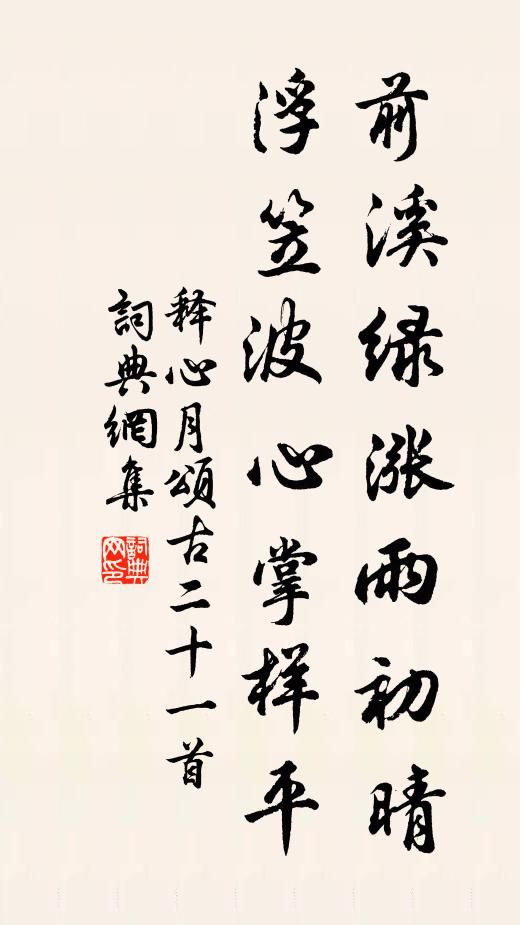 前溪绿涨雨初晴
浮笠波心掌样平
释心月頌古二十一首
詞典網集
詞典网印